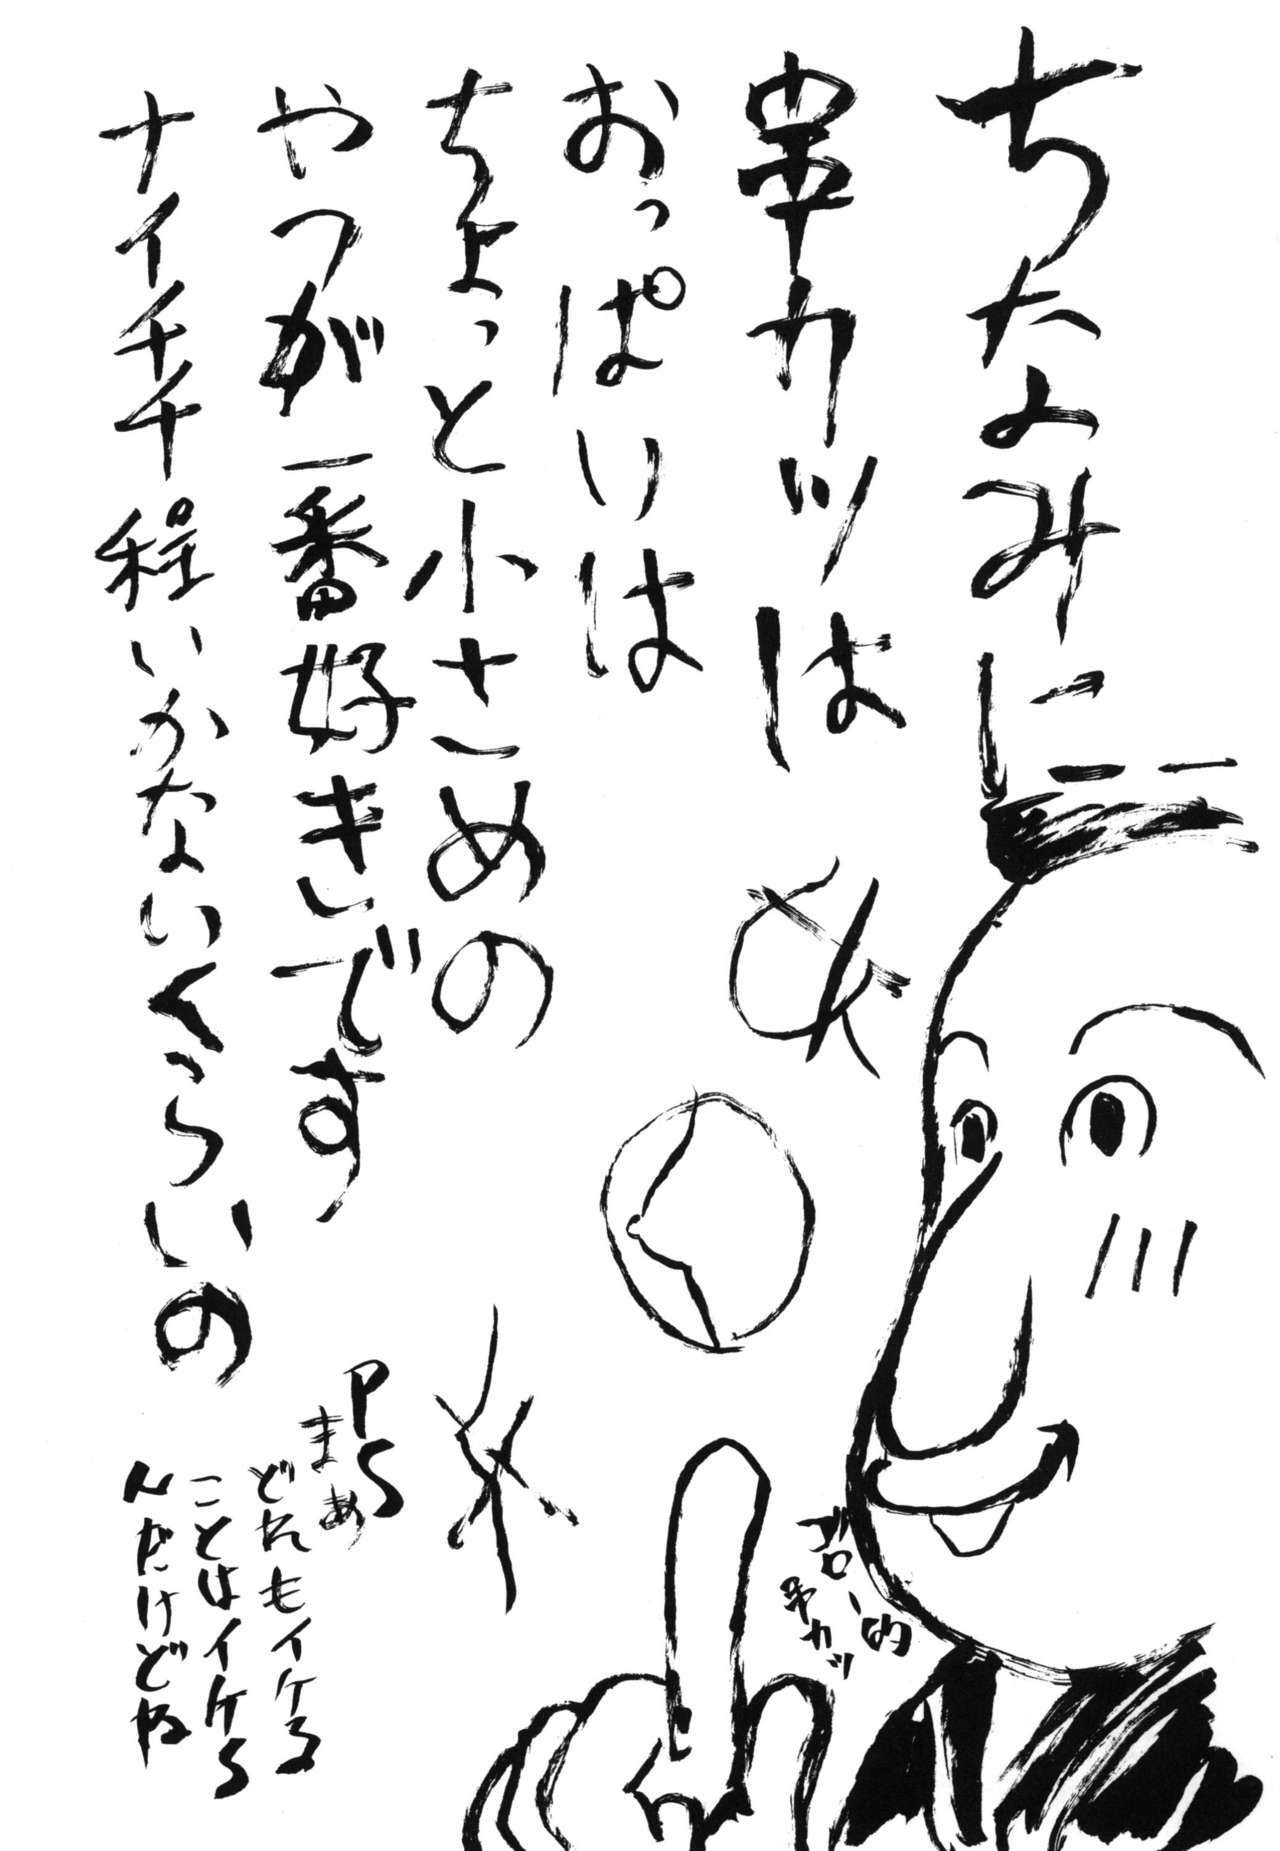 ちなみに
串カツは
おっぱいは
ちょっと小さめの
やつが一番好きです
ナイチチ程いかないくらいの
PS
まぁ
どれもイケる
ことはイケる
んだけどね
串カツ